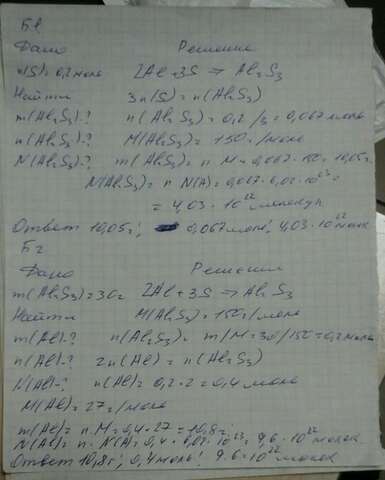 Б1
Дано Решение
n(S)=0,2 моль 2Al+3S → Al₂S₃
Найти 3n(S)=n(Al₂S₃)
m(Al₂S₃)-? n(Al₂S₃)=0,2/3=0,067 моль
n(Al₂S₃)-? M(Al₂S₃)=150 г/моль
N(Al₂S₃)-? m(Al₂S₃)=n·M=0,067·150=10,05г
N(Al₂S₃)=n·N(A)=0,067·6,02·10²³=
=4,03·10²² молекул
Ответ 10,05г; 0,067моль; 4,03·10²² молек
Б2
Дано Решение
m(Al₂S₃)=30г 2Al+3S → Al₂S₃
Найти M(Al₂S₃)=150г/моль
m(Al)-? n(Al₂S₃)=m/M=30/150=0,2 моль
n(Al)-? 2n(Al)=n(Al₂S₃)
N(Al)-? n(Al)=0,2·2=0,4 моль
M(Al)=27г/моль
m(Al)=n·M=0,4·27=10,8г
N(Al)=n·N(A)=0,4·6,02·10²³=9,6·10²² молек
Ответ 10,8г; 0,4моль; 9,6·10²² молек